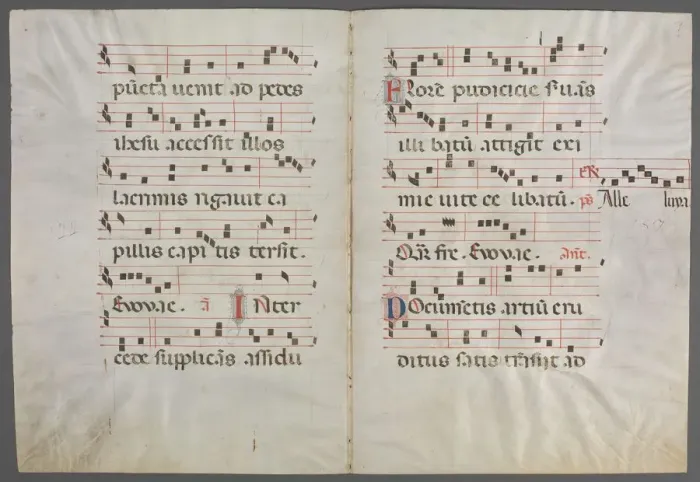 pūcta uenit ad pedes
ihesu accessit illos
lacrimis rigauit ca
pillis capi tis tersit.
Evovae. a̅ INter
cede supplicās assidu
FLorē pudicicie
illi batū attigit exi
mie uite ee libatū. ps̄ Alle luya
fre. Evovae. Ant.
DOcumētis artiū eru
ditus satis trāsiit ad